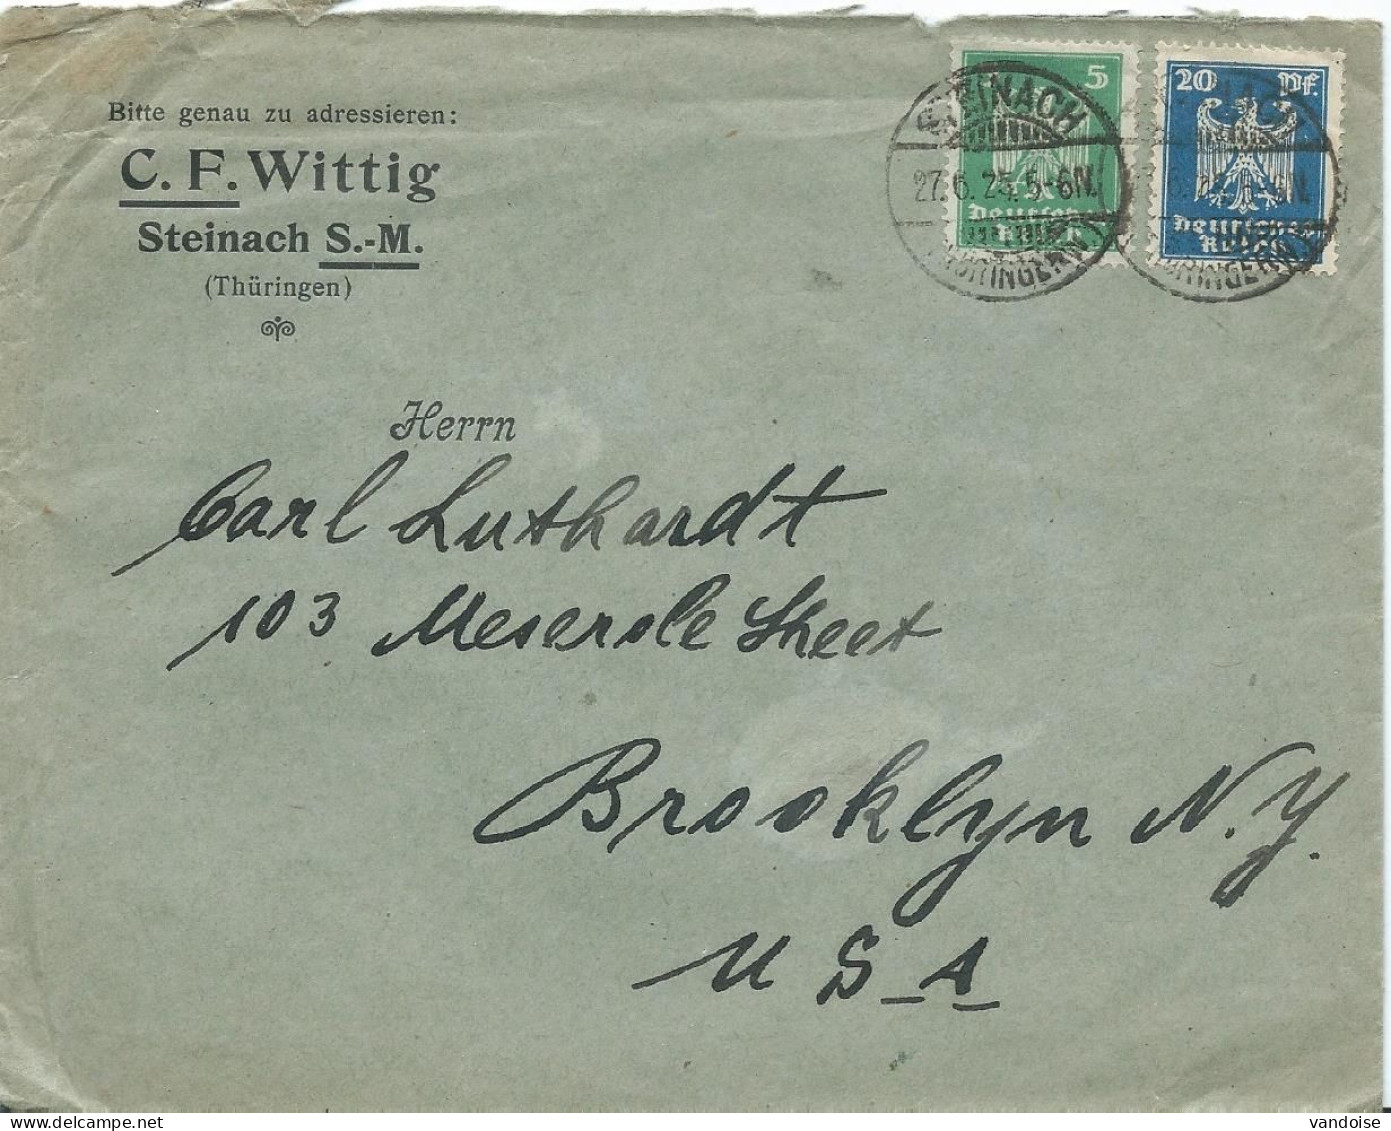 Bitte genau zu adressieren:
C. F. Wittig
Steinach S.-M.
(Thüringen)
5
20 Pf.
Deutsches Reich
Deutsches Reich
STEINACH
27.6.25.5-6N.
THÜRINGERW.
Herrn
Carl Luthardt
103 Meserole Street
Brooklyn N.Y.
U S A
vandoise